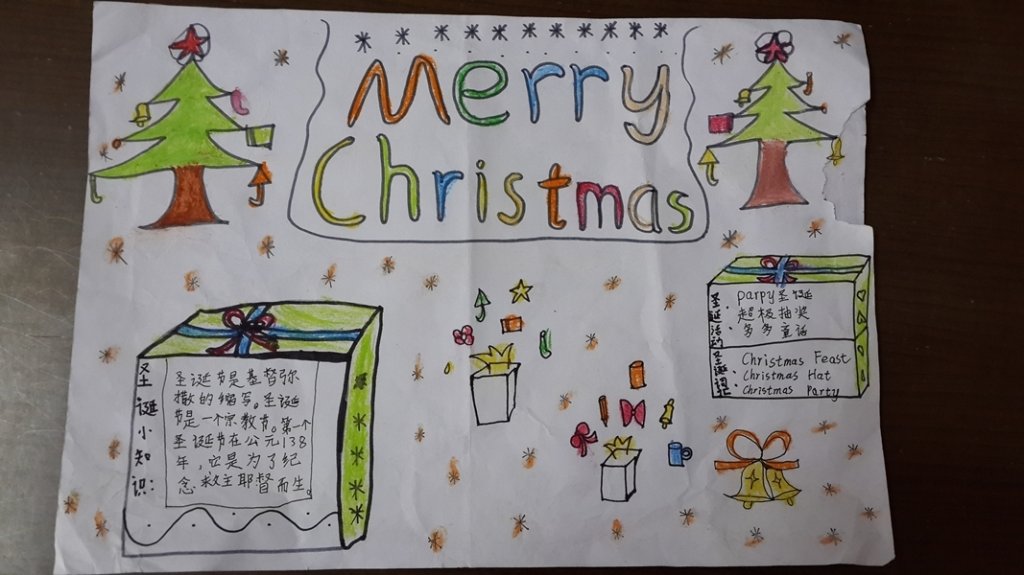 Merry
Christmas
圣诞小知识:
圣诞节是基督弥
撒的缩写。圣诞
节是一个宗教节。第一个
圣诞节在公元138
年，它是为了纪
念救主耶督而生。
圣诞活动
parpy圣诞
超级抽奖
多多童话
圣诞词汇
Christmas Feast
Christmas Hat
Christmas Party